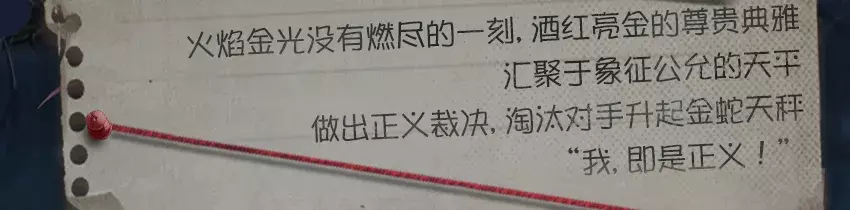 火焰金光没有燃尽的一刻，酒红亮金的尊贵典雅
汇聚于象征公允的天平
做出正义裁决，淘汰对手升起金蛇天秤
“我，即是正义！”